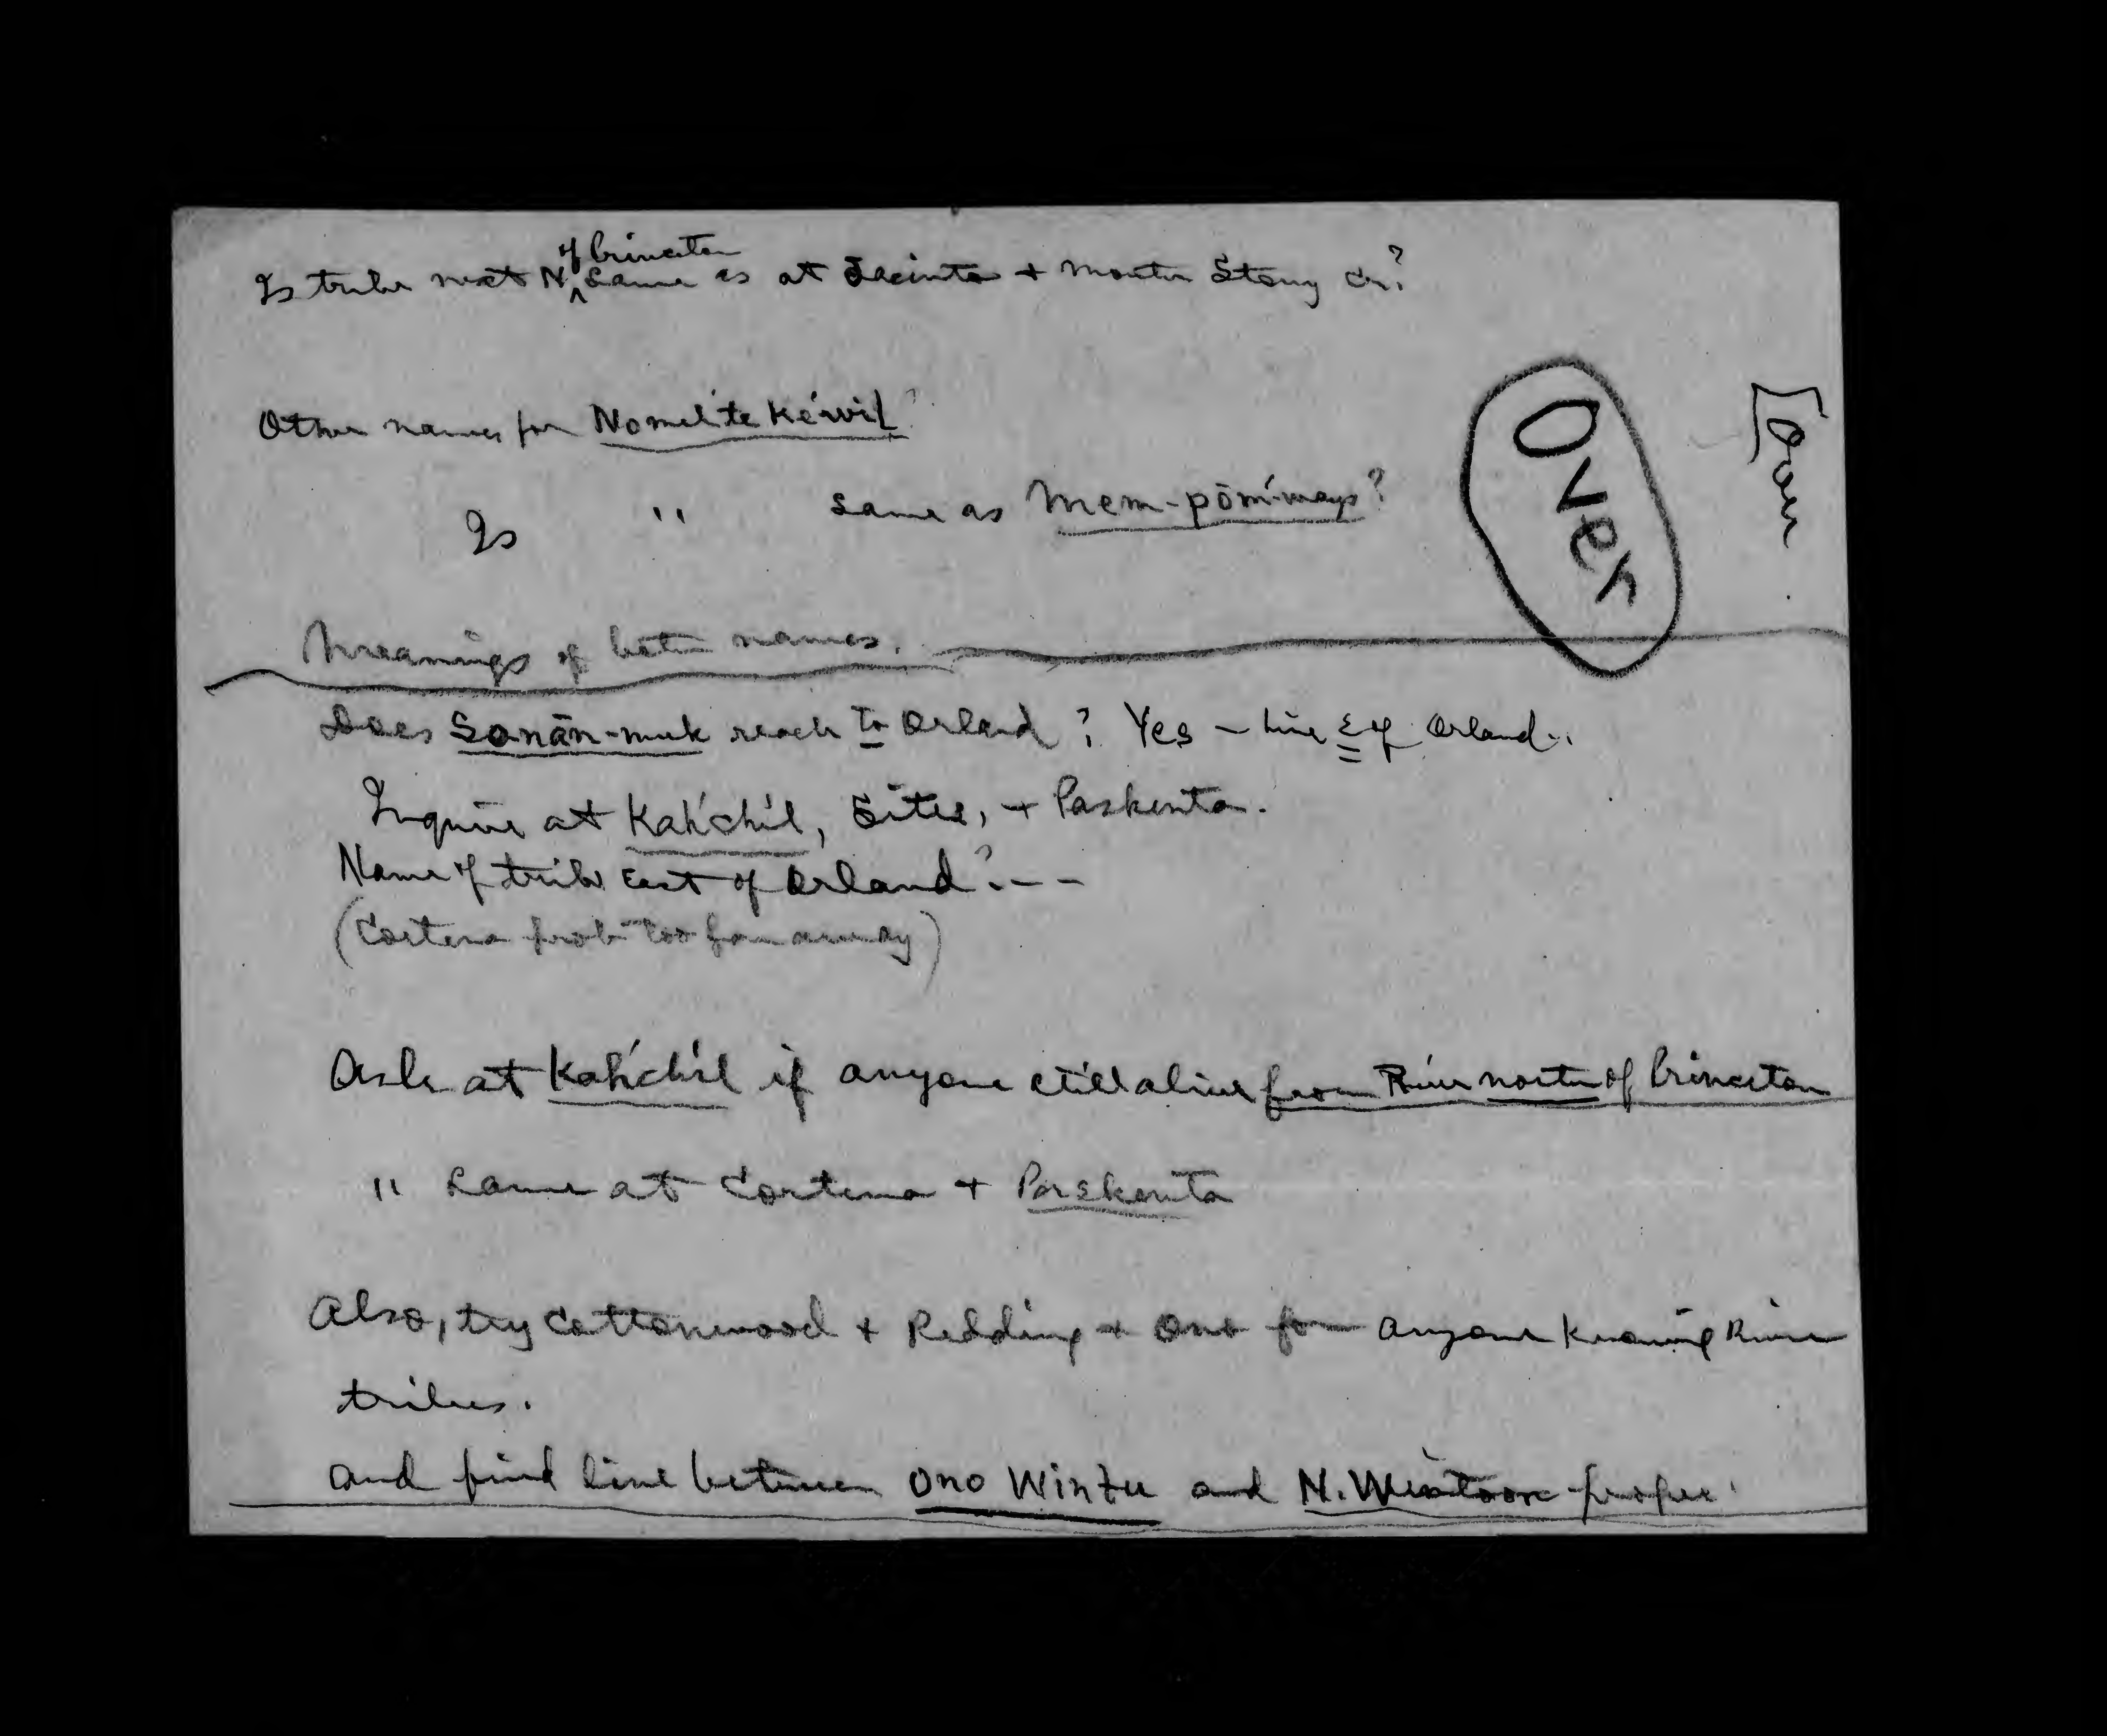 Is tribe next N. of Princeton same as at Jacinto + mouth Stony Cr.?
Other names for Nomel'te Ke'wil?
Over
[over
Is " same as Mem-pōm'-mays?
Meanings of both names.
Does Sonān-muk reach to Orland? Yes - line E of Orland..
Inquire at Kah'chil, Sites, + Paskenta.
Name of tribe East of Orland? - - -
(Cortena prob too far away)
Ask at Kah'chil if anyone still alive from River north of Princeton
" same at Cortena + Paskenta
Also, try Cottonwood + Redding + Ono for anyone knowing River
tribes.
and find line between Ono Wintu and N. Wintoon proper.